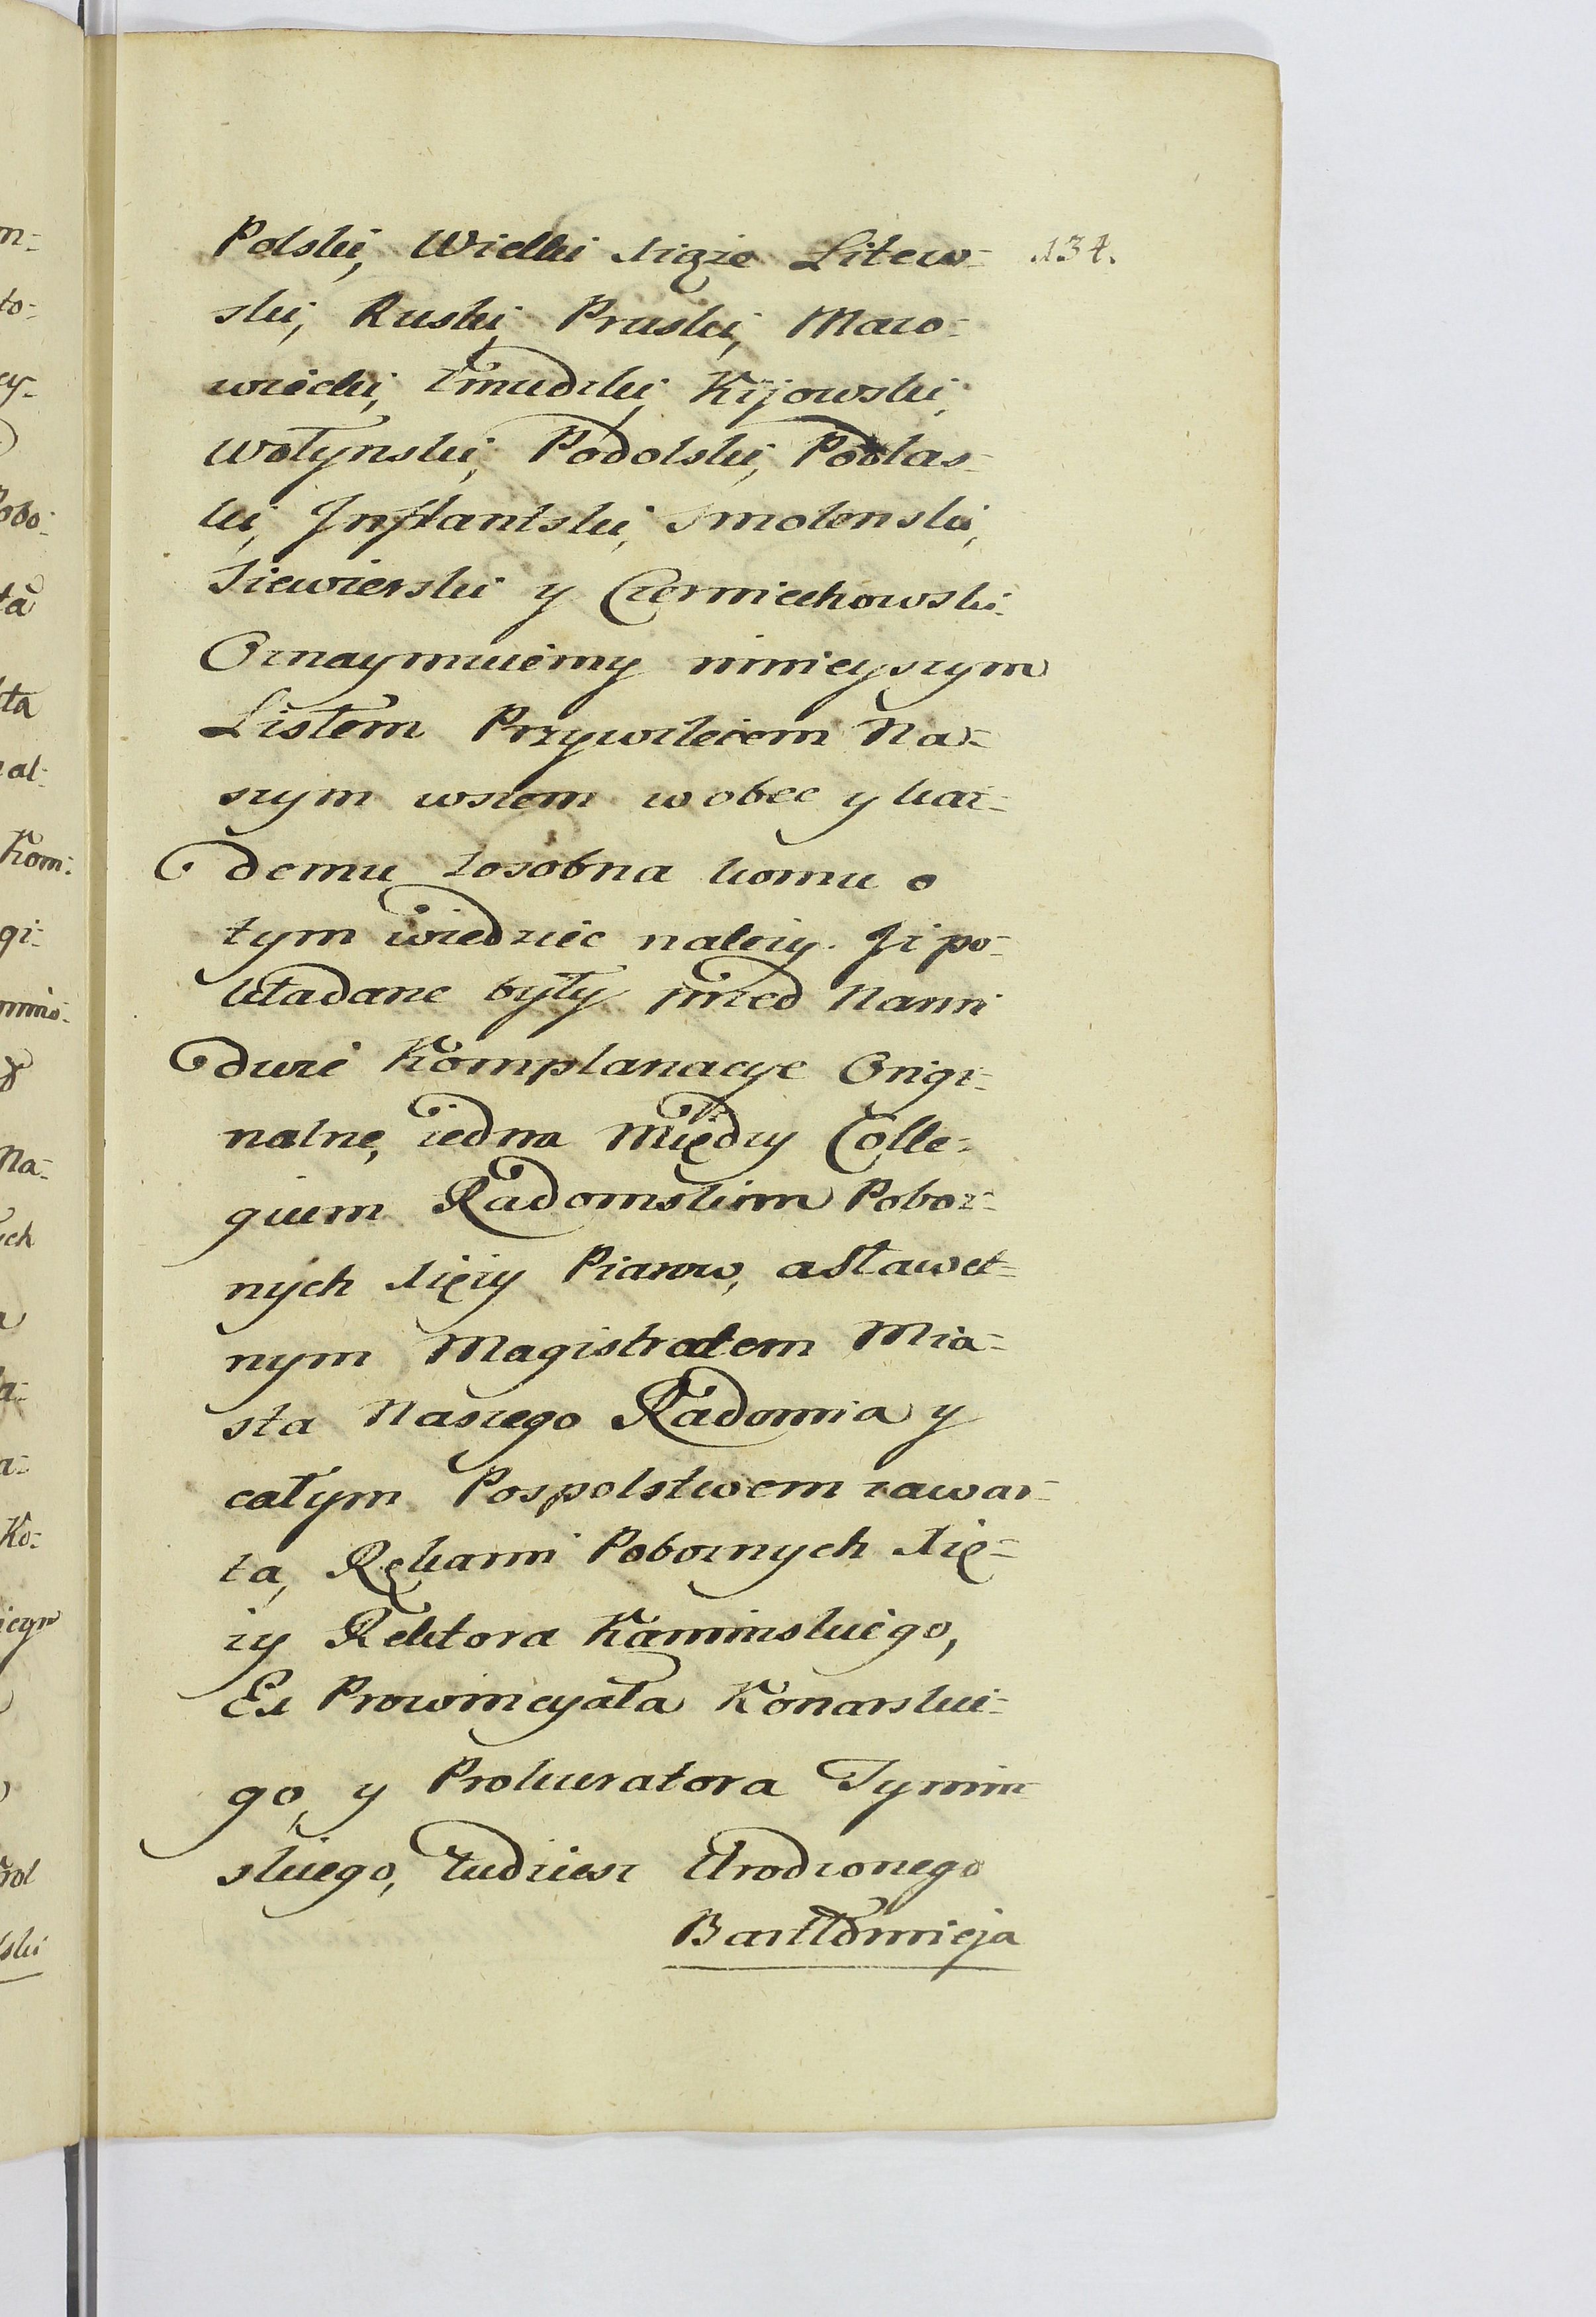 Polski, Wielki Xiąże Litew=
134.
ski, Ruski, Pruski, Mazo=
wiecki, Zmudzki, Kijowski,
Wołynski, Podolski, Podlas=
ki, Inflantski, Smolenski,
Siewierski y Czerniechowski.
Oznaymuiemy ninieyszym
Listem Przywileiem Na=
szym wszem wobec y kaz=
demu zosobna komu o
tym wiedziec nalezy. Iz po=
kładane były przed Nami
dwie Komplanacye Origi=
nalne, iedna Między Colle=
gium Radomskim Poboz=
nych Xięzy Piarow, a Sławet=
nym Magistratem Mia=
sta Naszego Radomia y
całym Pospolstwem zawar=
ta, Rękami Poboznych Xię=
zy Rektora Kaminskiego,
Ex Prowincyała Konarskie=
go, y Prokuratora Tymin=
skiego, tudziesz Urodzonego
Bartłomieja